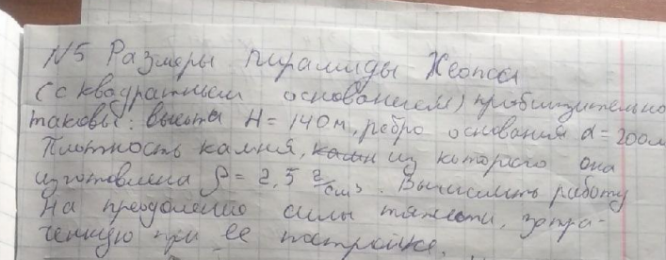 N5 Размеры пирамиды Хеопса
(с квадратным основанием) приблизительно
таковы: высота H = 140м, ребро основания a = 200м
Плотность камня, из которого она
изготовлена ρ = 2,5 г/см³. Вычислить работу
На преодоление силы тяжести, затра-
ченную при ее постройке.